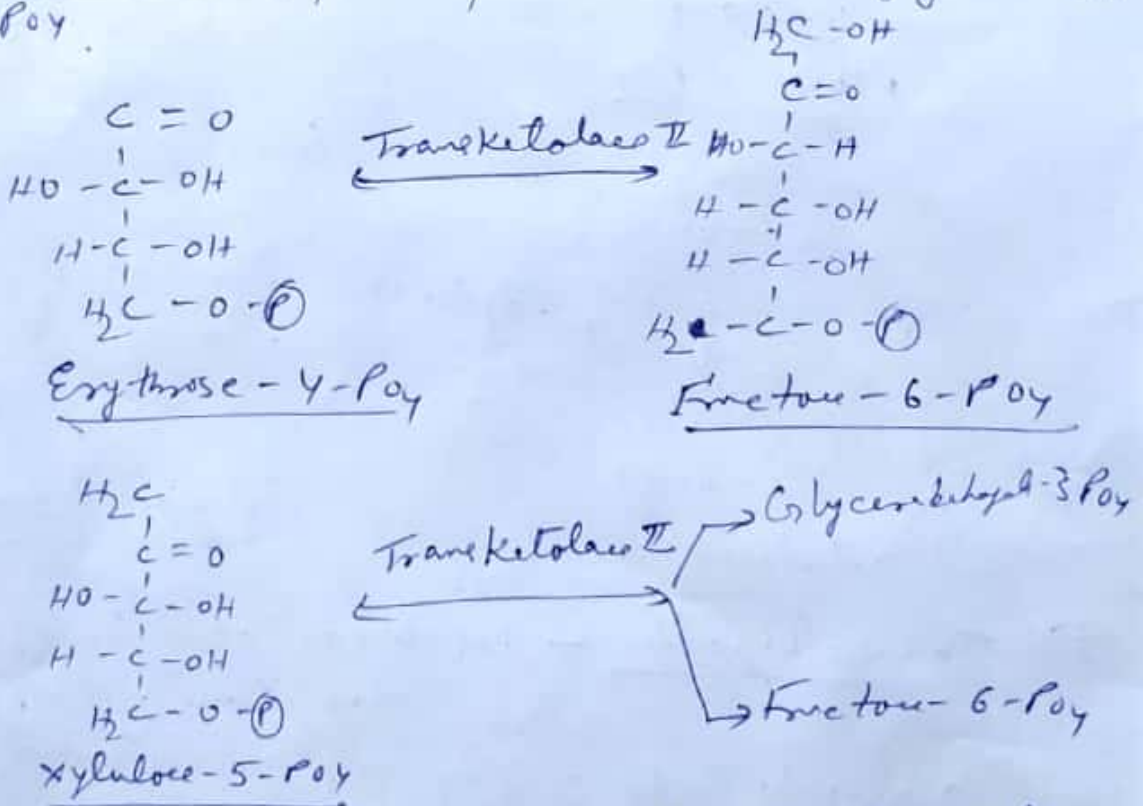 PO4.
C = O
HO - C - OH
H - C - OH
H2C - O - P
Erythrose - 4 - PO4
Transketolase II
H2C - OH
C = O
HO - C - H
H - C - OH
H - C - OH
H2 - C - O - P
Fructose - 6 - PO4
H2C
C = O
HO - C - OH
H - C - OH
H2C - O - P
xylulose - 5 - PO4
Transketolase II
Glyceraldehyde - 3 PO4
Fructose - 6 - PO4